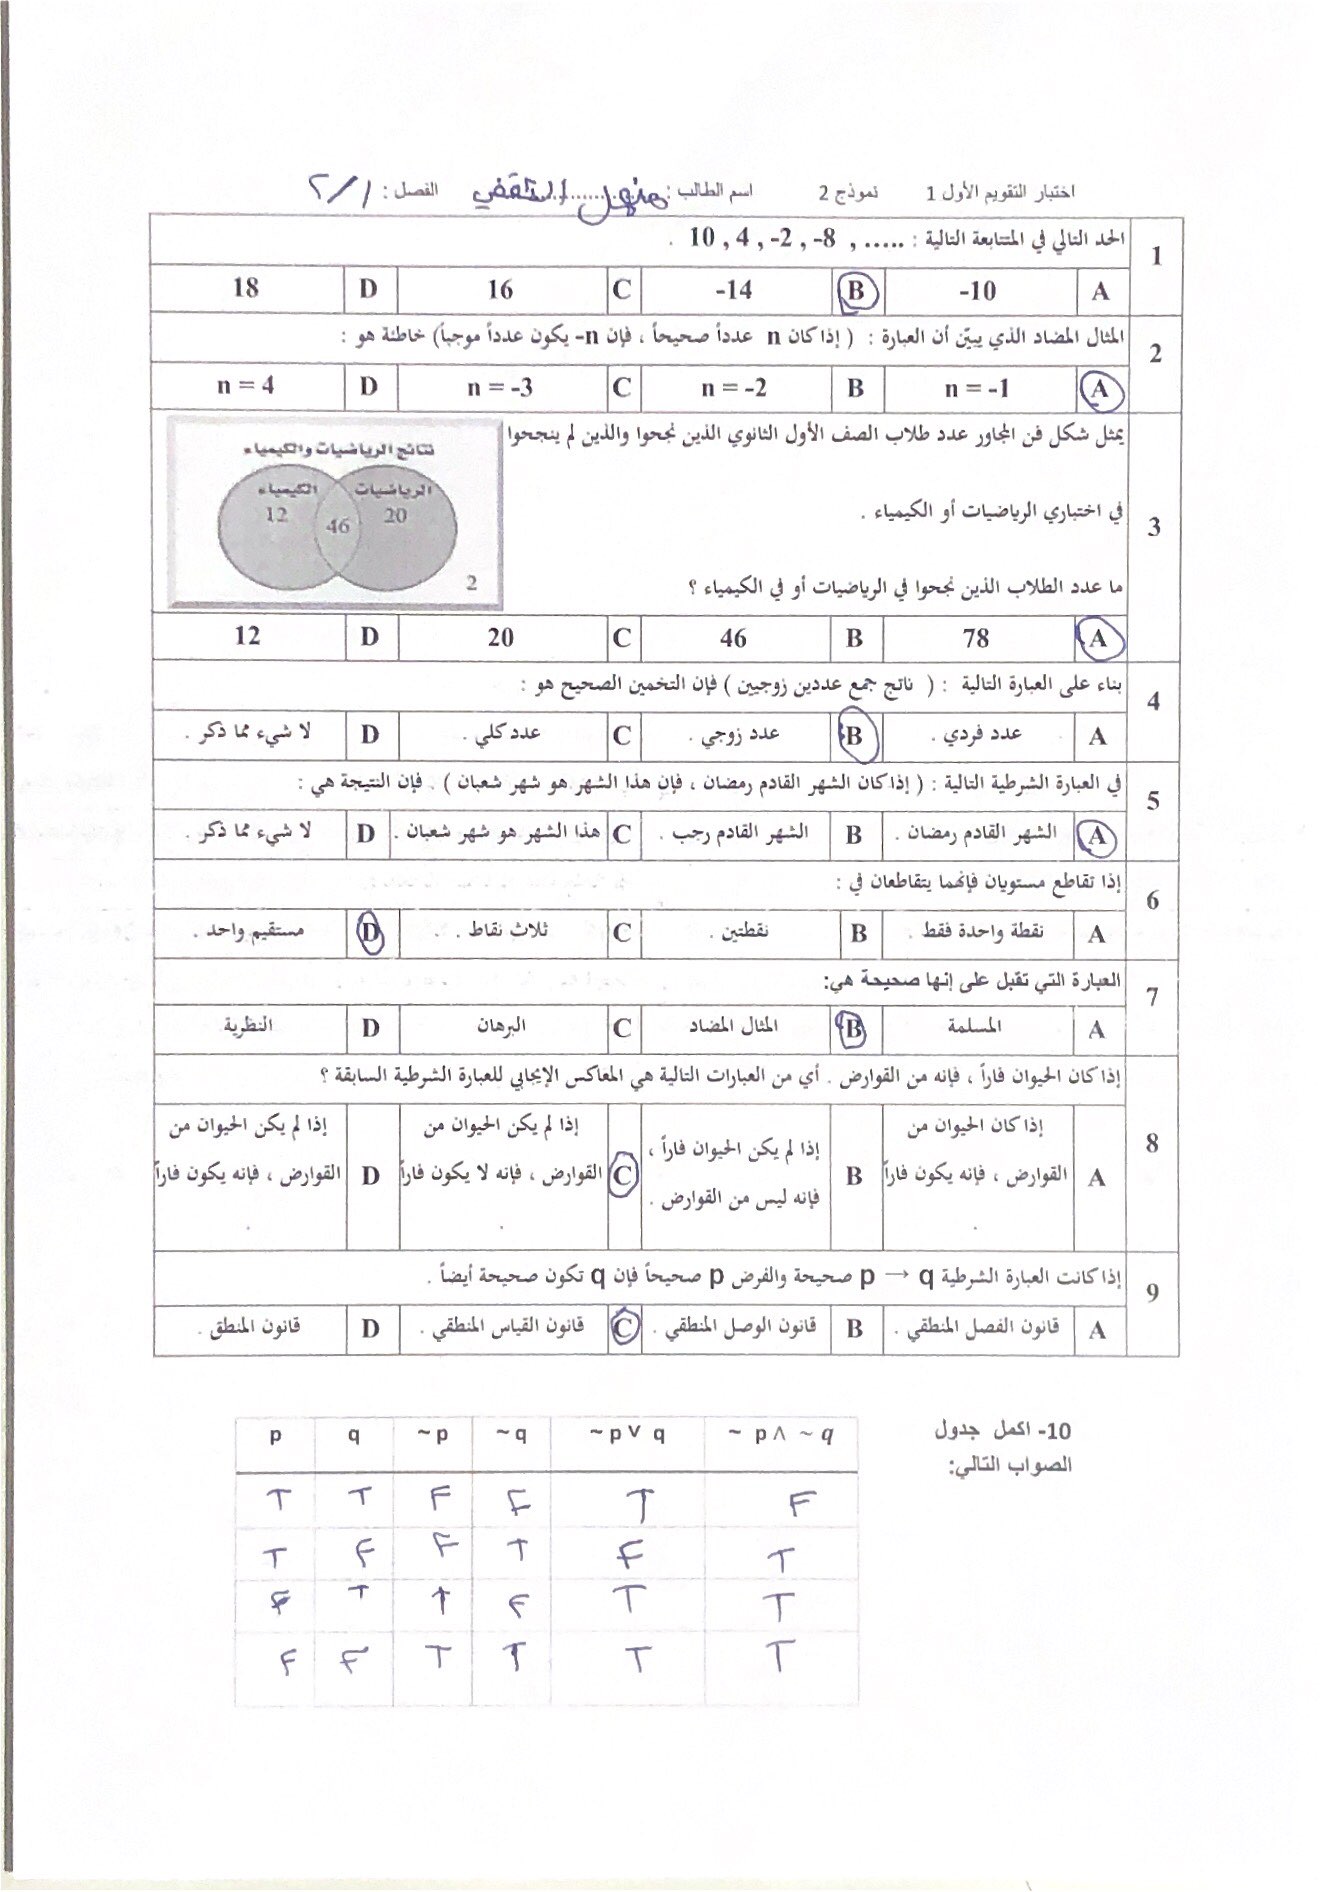 اختبار التقويم الأول 1 نموذج 2 اسم الطالب : منهل الثقفي الفصل : ٢/١
1 الحد التالي في المتتابعة التالية : ..... , 8- , 2- , 4 , 10 .
A -10 B -14 C 16 D 18
2 المثال المضاد الذي يبيّن أن العبارة : ( إذا كان n عدداً صحيحاً ، فإن n- يكون عدداً موجباً) خاطئة هو :
A n = -1 B n = -2 C n = -3 D n = 4
3 يمثل شكل فن المجاور عدد طلاب الصف الأول الثانوي الذين نجحوا والذين لم ينجحوا
في اختباري الرياضيات أو الكيمياء .
ما عدد الطلاب الذين نجحوا في الرياضيات أو في الكيمياء ؟
نتائج الرياضيات والكيمياء
الرياضيات الكيمياء
20 46 12
2
A 78 B 46 C 20 D 12
4 بناء على العبارة التالية : ( ناتج جمع عددين زوجيين ) فإن التخمين الصحيح هو :
A عدد فردي . B عدد زوجي . C عدد كلي . D لا شيء مما ذكر .
5 في العبارة الشرطية التالية : ( إذا كان الشهر القادم رمضان ، فإن هذا الشهر هو شهر شعبان ) . فإن النتيجة هي :
A الشهر القادم رمضان . B الشهر القادم رجب . C هذا الشهر هو شهر شعبان . D لا شيء مما ذكر .
6 إذا تقاطع مستويان فإنهما يتقاطعان في :
A نقطة واحدة فقط . B نقطتين . C ثلاث نقاط . D مستقيم واحد .
7 العبارة التي تقبل على إنها صحيحة هي:
A المسلمة B المثال المضاد C البرهان D النظرية
8 إذا كان الحيوان فاراً ، فإنه من القوارض . أي من العبارات التالية هي المعاكس الإيجابي للعبارة الشرطية السابقة ؟
A إذا كان الحيوان من
القوارض ، فإنه يكون فاراً
.
B إذا لم يكن الحيوان فاراً ،
فإنه ليس من القوارض .
C إذا لم يكن الحيوان من
القوارض ، فإنه لا يكون فاراً
.
D إذا لم يكن الحيوان من
القوارض ، فإنه يكون فاراً
.
9 إذا كانت العبارة الشرطية p → q صحيحة والفرض p صحيحاً فإن q تكون صحيحة أيضاً .
A قانون الفصل المنطقي . B قانون الوصل المنطقي . C قانون القياس المنطقي . D قانون المنطق .
10- اكمل جدول
الصواب التالي:
p q ~p ~q ~p ∨ q ~ p ∧ ~ q
T T F F T F
T F F T F T
F T T F T T
F F T T T T